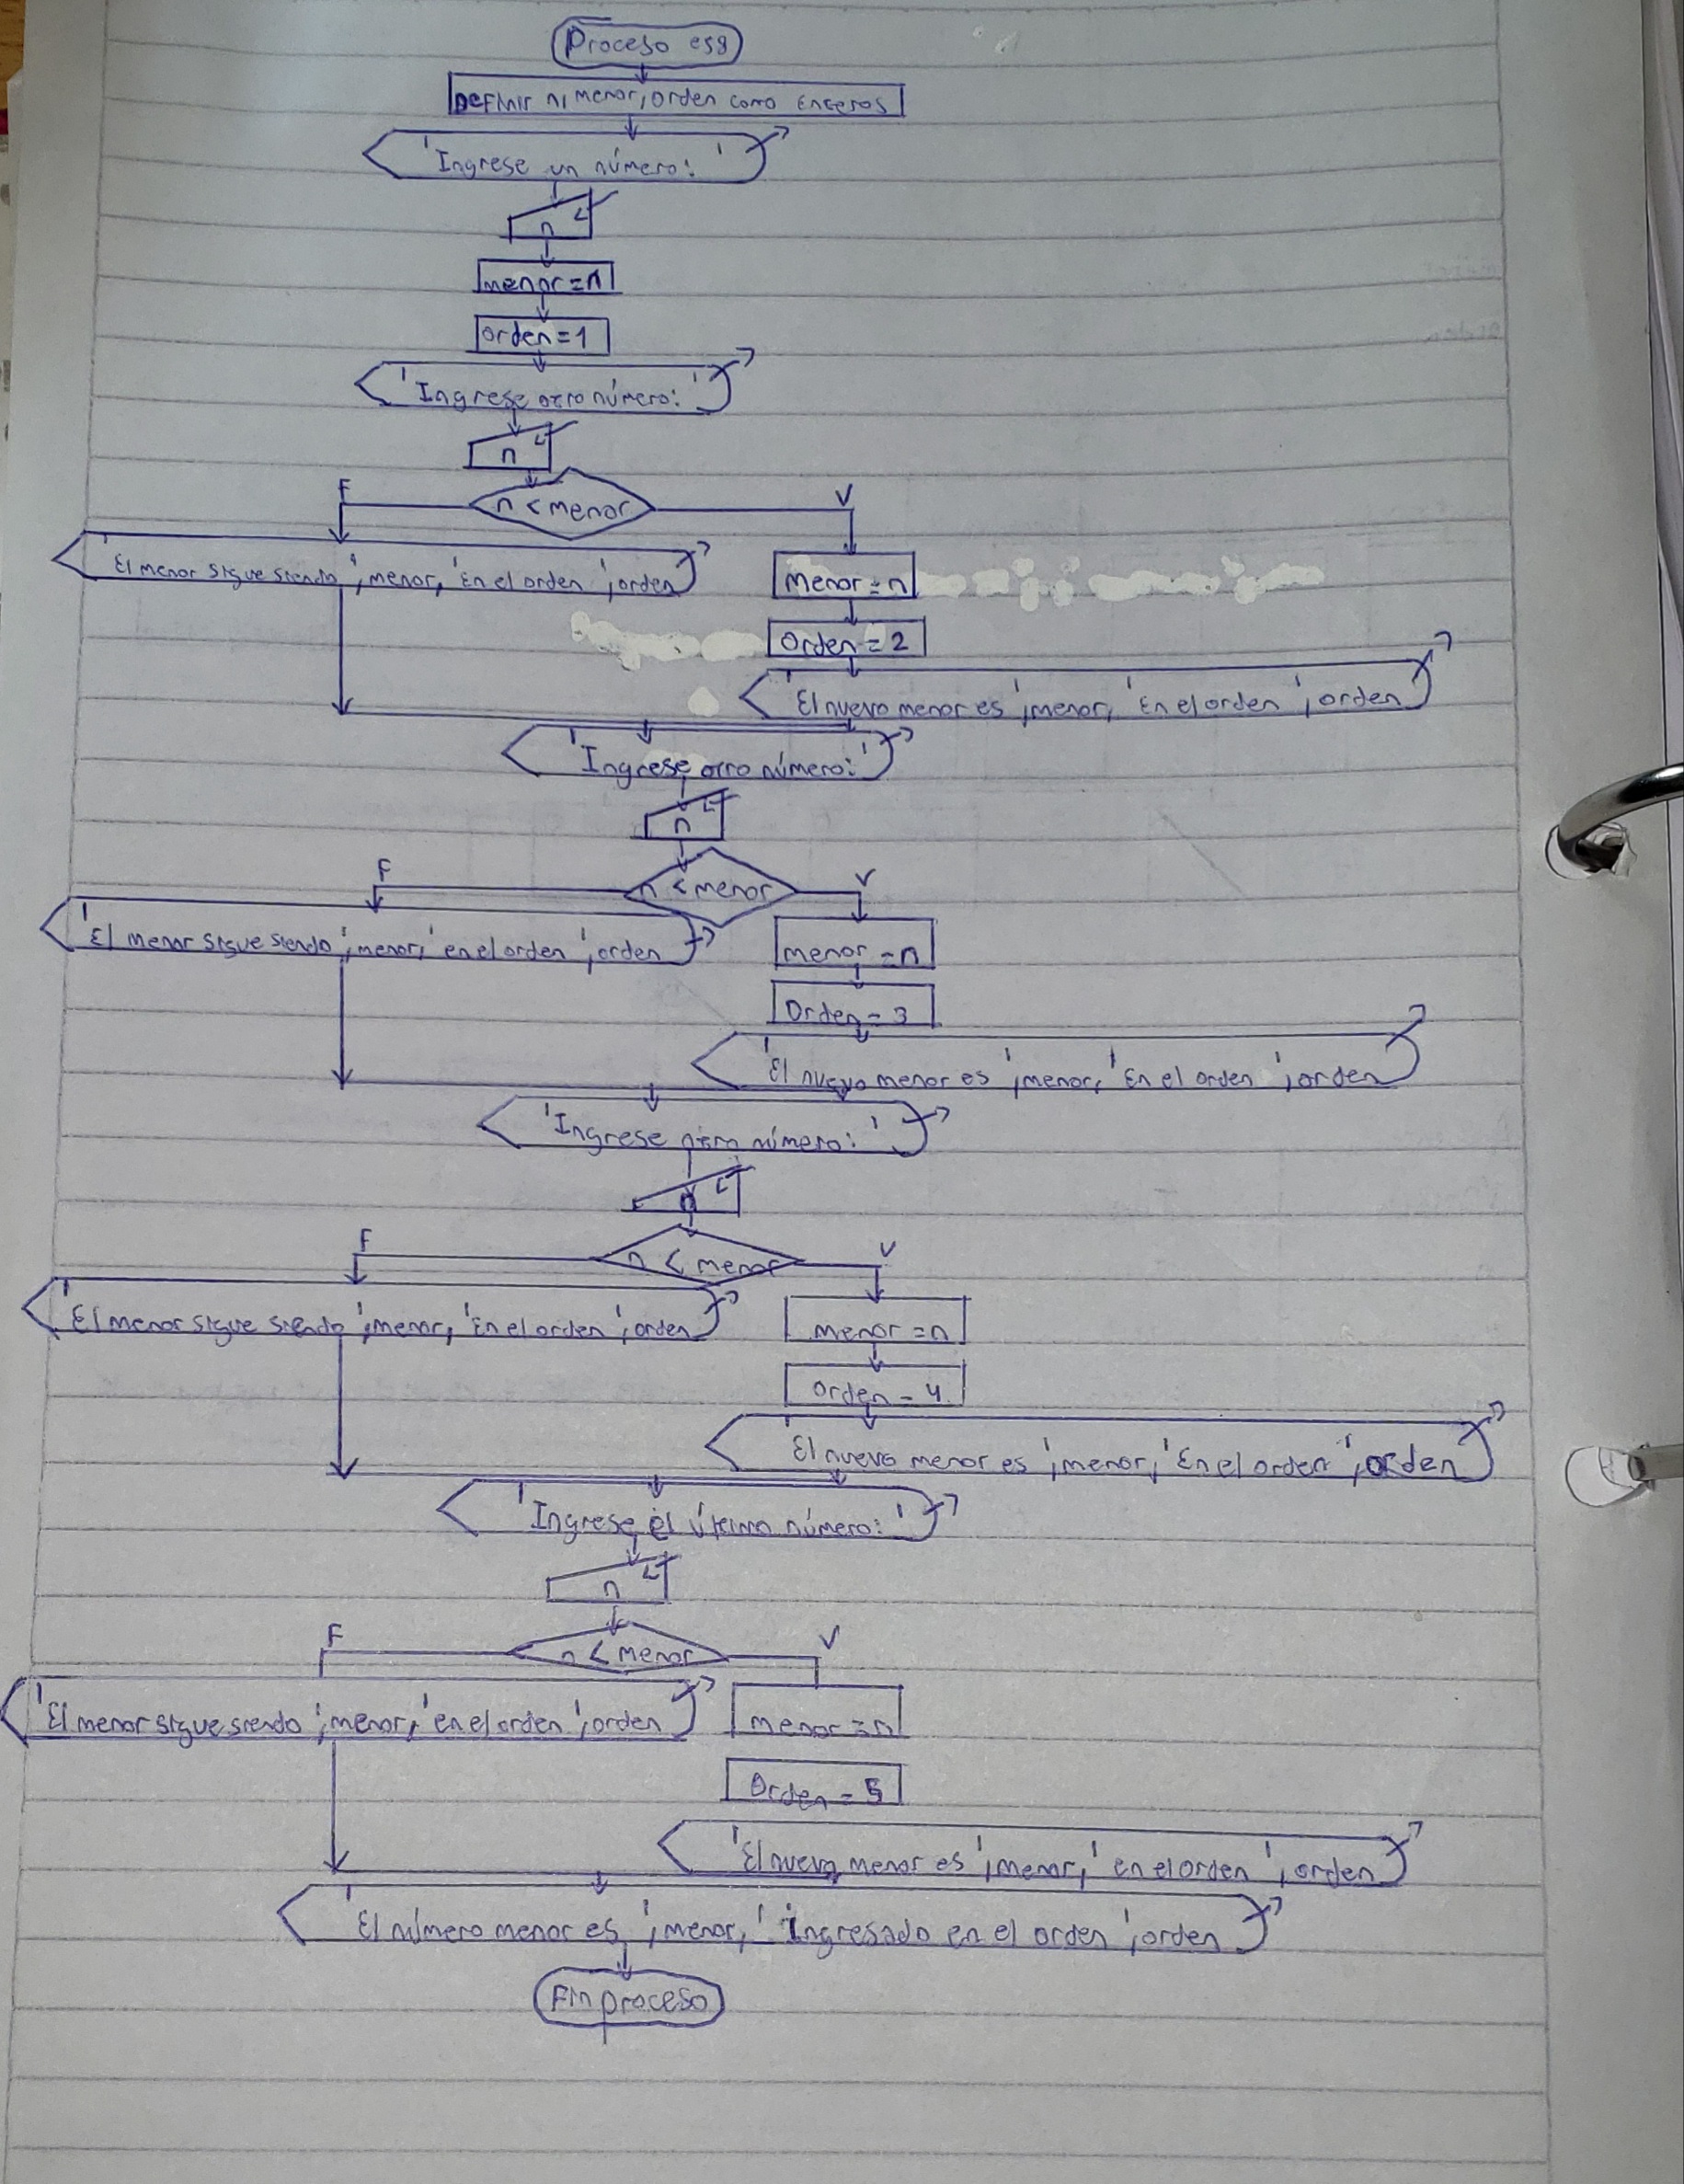 Proceso es8
Definir n, menor, orden como Enteros
'Ingrese un número: '
n
menor = n
orden = 1
'Ingrese otro número: '
n
n < menor
F
V
'El menor sigue siendo ', menor, 'En el orden ', orden
menor = n
Orden = 2
'El nuevo menor es ', menor, 'En el orden ', orden
'Ingrese otro número: '
n
n < menor
F
V
'El menor sigue siendo ', menor, 'en el orden ', orden
menor = n
Orden = 3
'El nuevo menor es ', menor, 'En el orden ', orden
'Ingrese otro número: '
n
n < menor
F
V
'El menor sigue siendo ', menor, 'En el orden ', orden
menor = n
orden = 4
'El nuevo menor es ', menor, 'En el orden ', orden
'Ingrese el útimo número: '
n
n < menor
F
V
'El menor sigue siendo ', menor, 'en el orden ', orden
menor = n
Orden = 5
'El nuevo menor es ', menor, 'en el orden ', orden
'El número menor es ', menor, ' Ingresado en el orden ', orden
Fin proceso